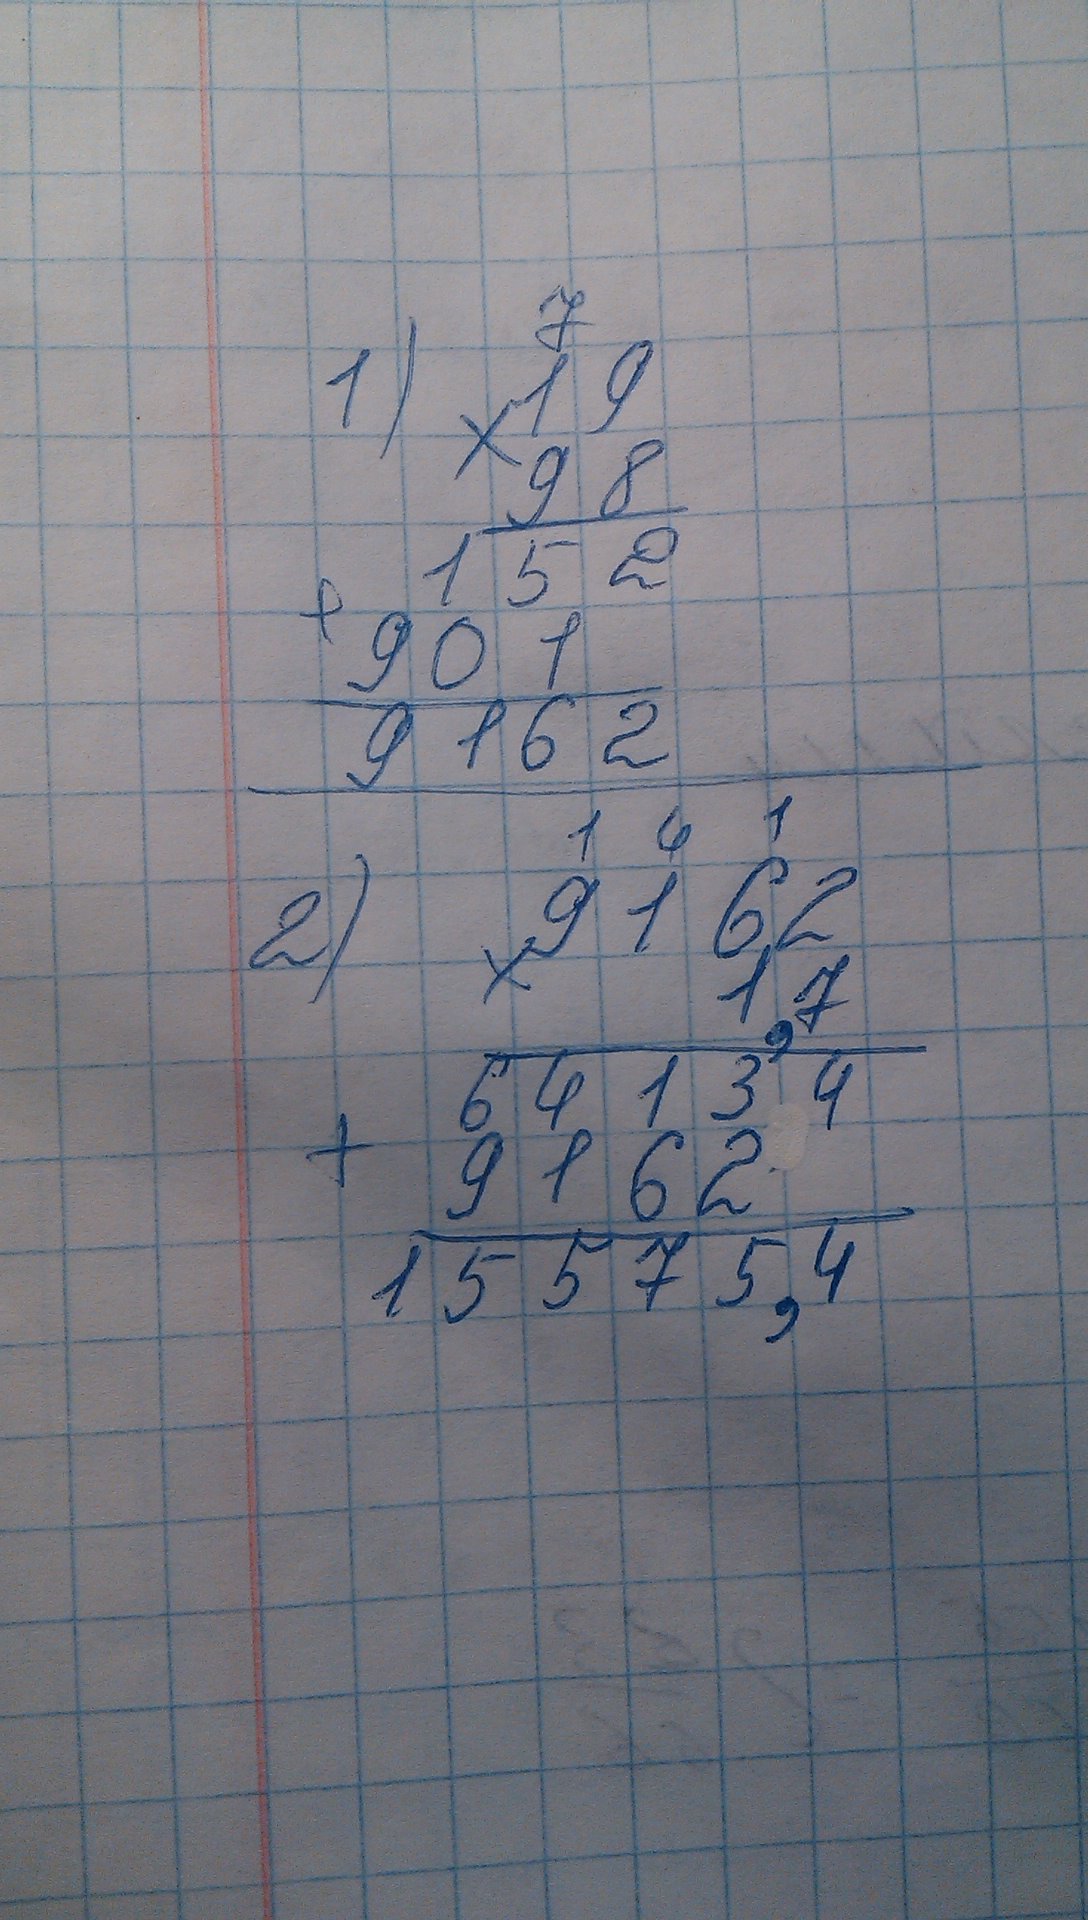 7
1) 19
× 98
152
+ 901
9162
1 4 1
2) 9162
× 1,7
6413 4
+ 9162
15575,4